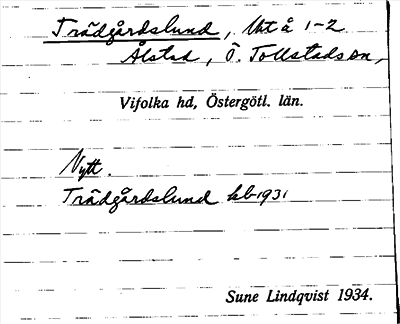 Trädgårdslund, Utå 1-2
Ålstad, Ö. Tollstads sn,
Vifolka hd, Östergötl. län.
Nytt.
Trädgårdslund kb 1931
Sune Lindqvist 1934.